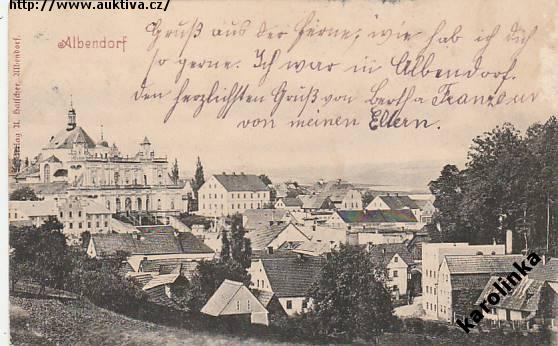 ( www.auktiva.cz )
Albendorf
Gruß aus der Ferne, wie hab ich dich
so gerne. Ich war in Albendorf.
den herzlichsten Gruß von Bertha Franz
von meinen Eltern.
Verlag A. Bartscher, Albendorf.
karolinka